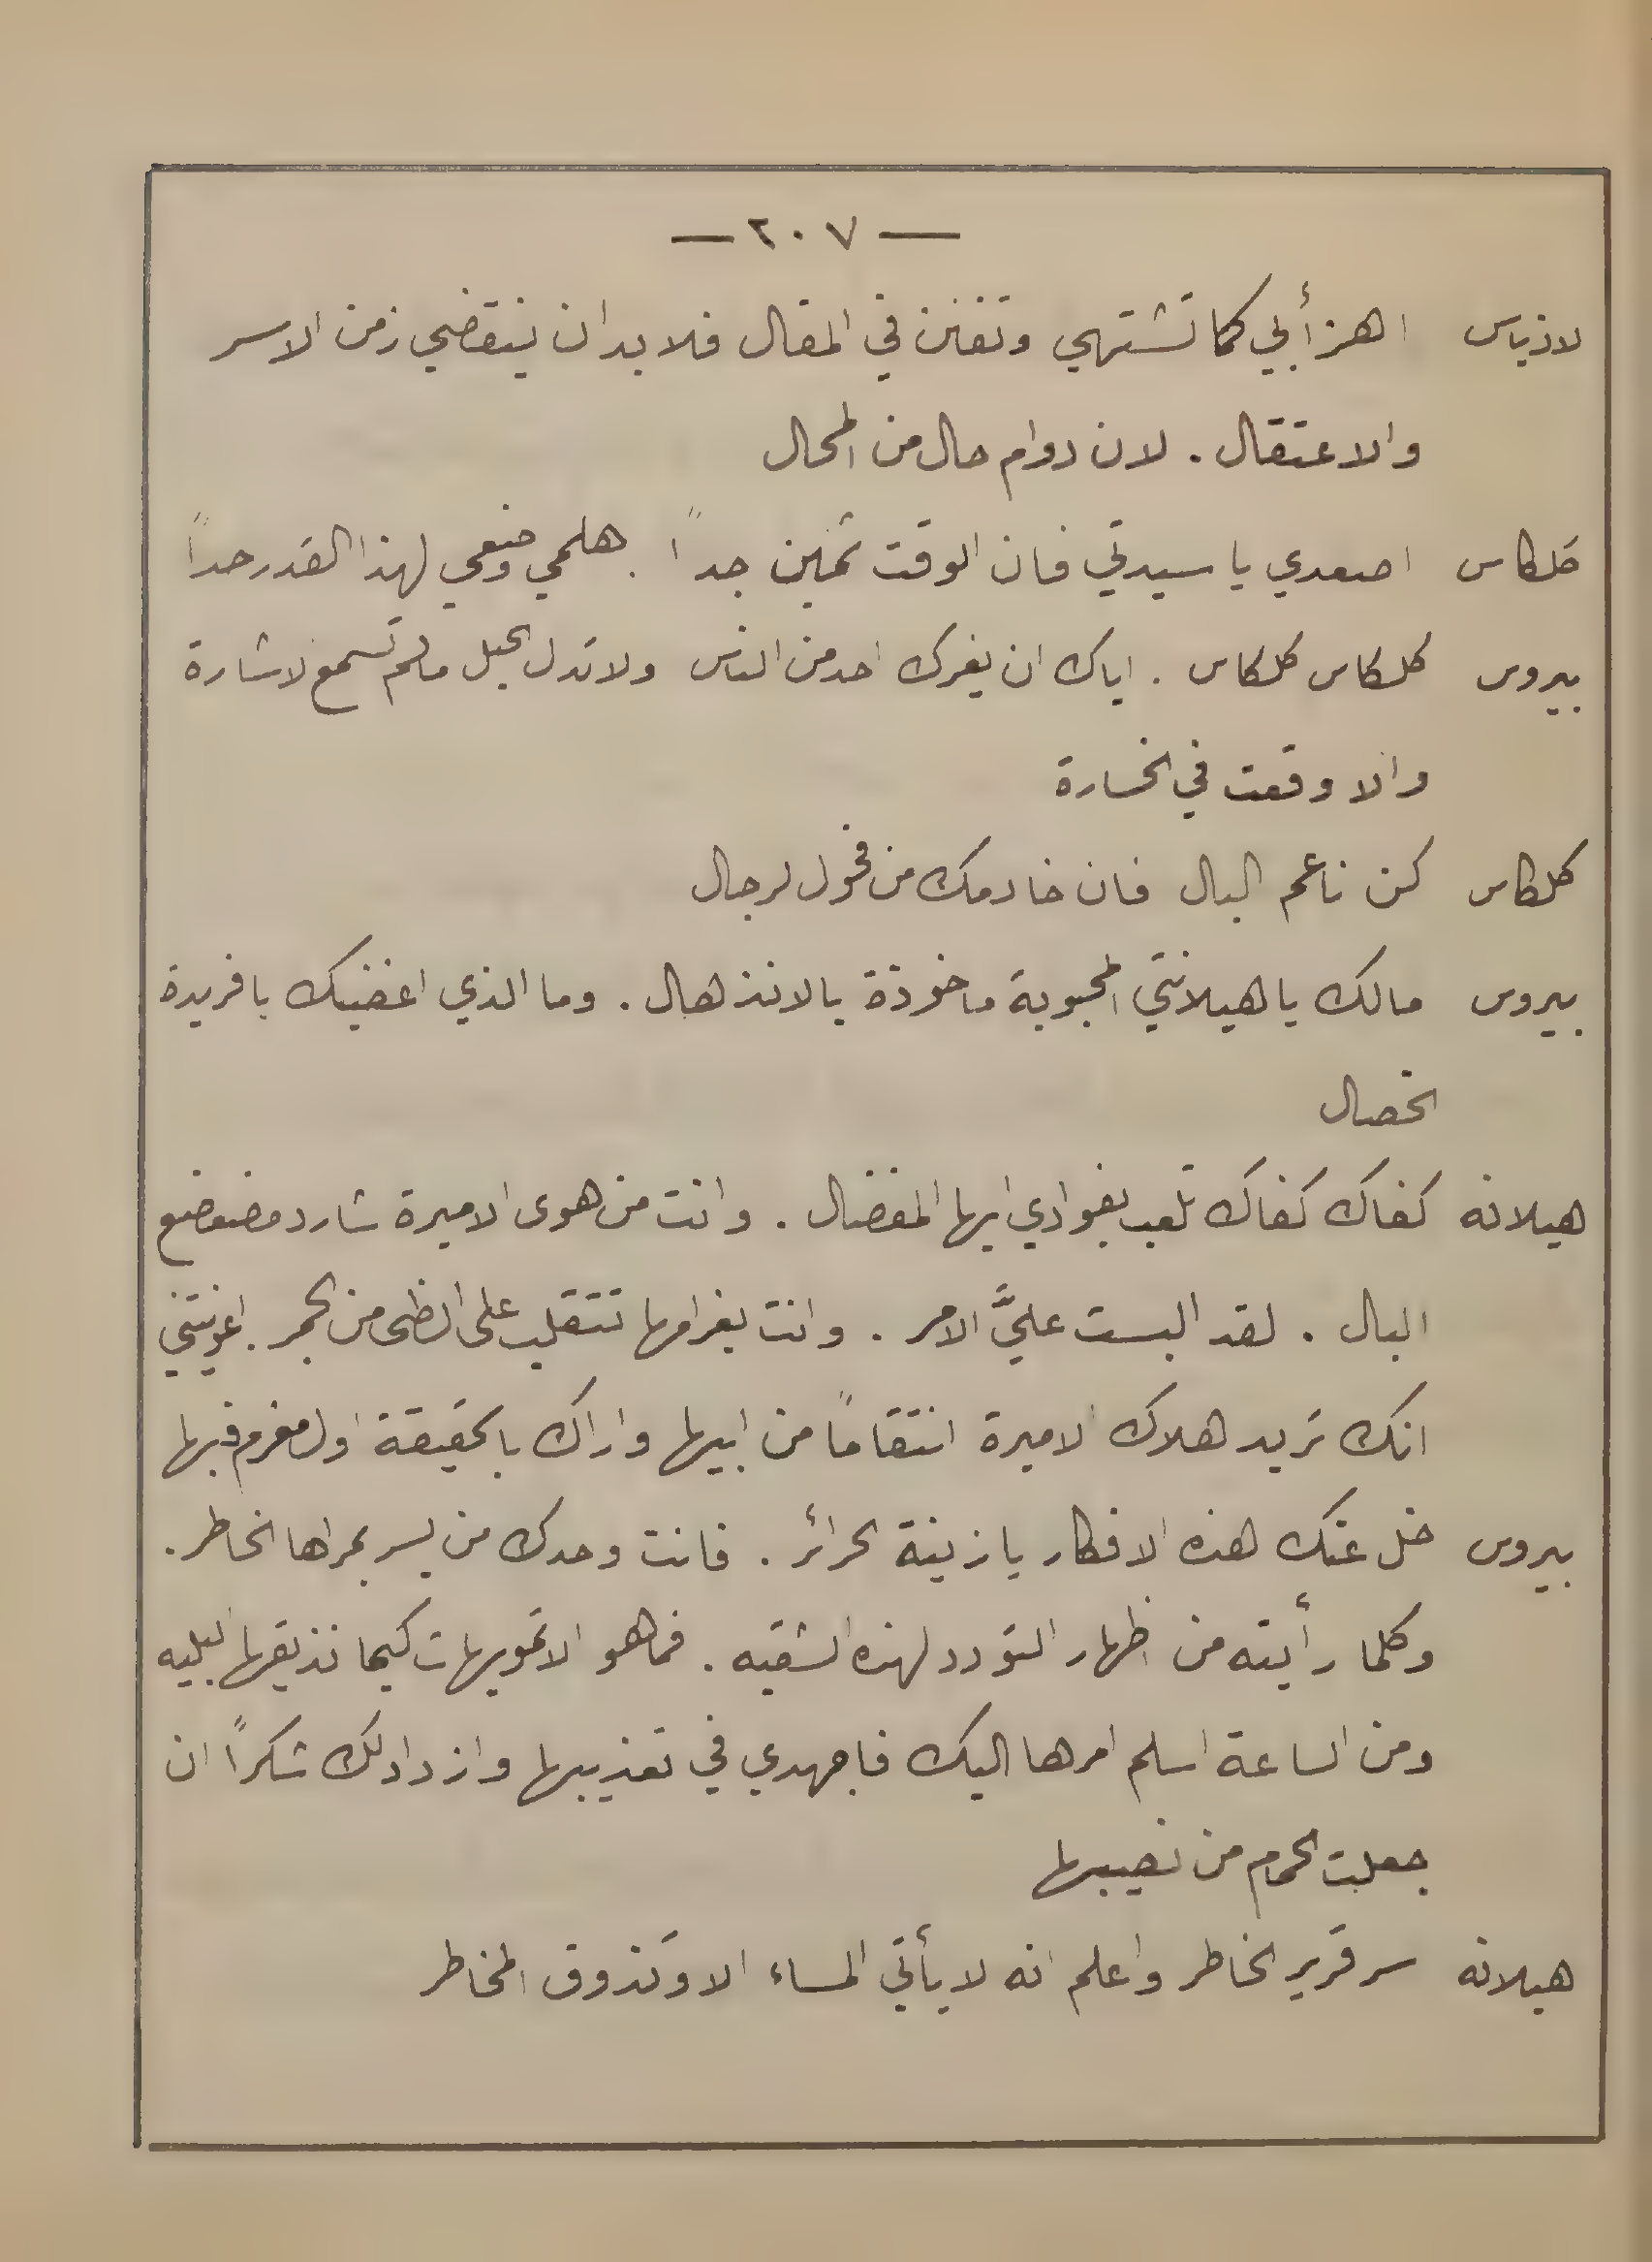 — ٢٠٧ —
لاذياس اهزأبي كما تشتهي وتفنن في المقال فلا بد ان ينقضي زمن الاسر
والاعتقال . لان دوام حال من المحال
كلكاس اصعدي يا سيدتي فان الوقت ثمين جداً . هلمي وضعي لهذا القدر حداً
بيروس كلكاس كلكاس . اياك ان يغرك احد من الناس ولا تدل الحبل مالم تسمع لاشارة
والا وقعت في الخسارة
كلكاس كن ناعم البال فان خادمك من فحول الرجال
بيروس مالك يا هيلانتي المحبوبة ماخوذة بالانذهال . وما الذي اغضبك يا فريدة
الخصال
هيلانه كفاك كفاك تلعب بفوادي ايها المفضال . وانت من هوى الاميرة شارد مضعضع
البال . لقد البست عليَّ الامر . وانت بغرامها تتقلب على الظى من الجمر . اغويتني
انك تريد هلاك الاميرة انتقاماً من ابيها واراك بالحقيقة اول مغرم فيها
بيروس خل عنك هذه الافكار يا زينة الحرائر . فانت وحدك من يسر بمراها الخاطر .
وكلما رأيته من اظهار التودد لهذه الشقيه . فما هو الا تمويهات كيما نذيقها البليه
ومن الساعة اسلم امرها اليك فاجهدي في تعذيبها وازداد لك شكراً ان
جعلت الحمام من نصيبها
هيلانه سر قرير الخاطر واعلم انه لا يأتي المساء الا وتذوق المخاطر